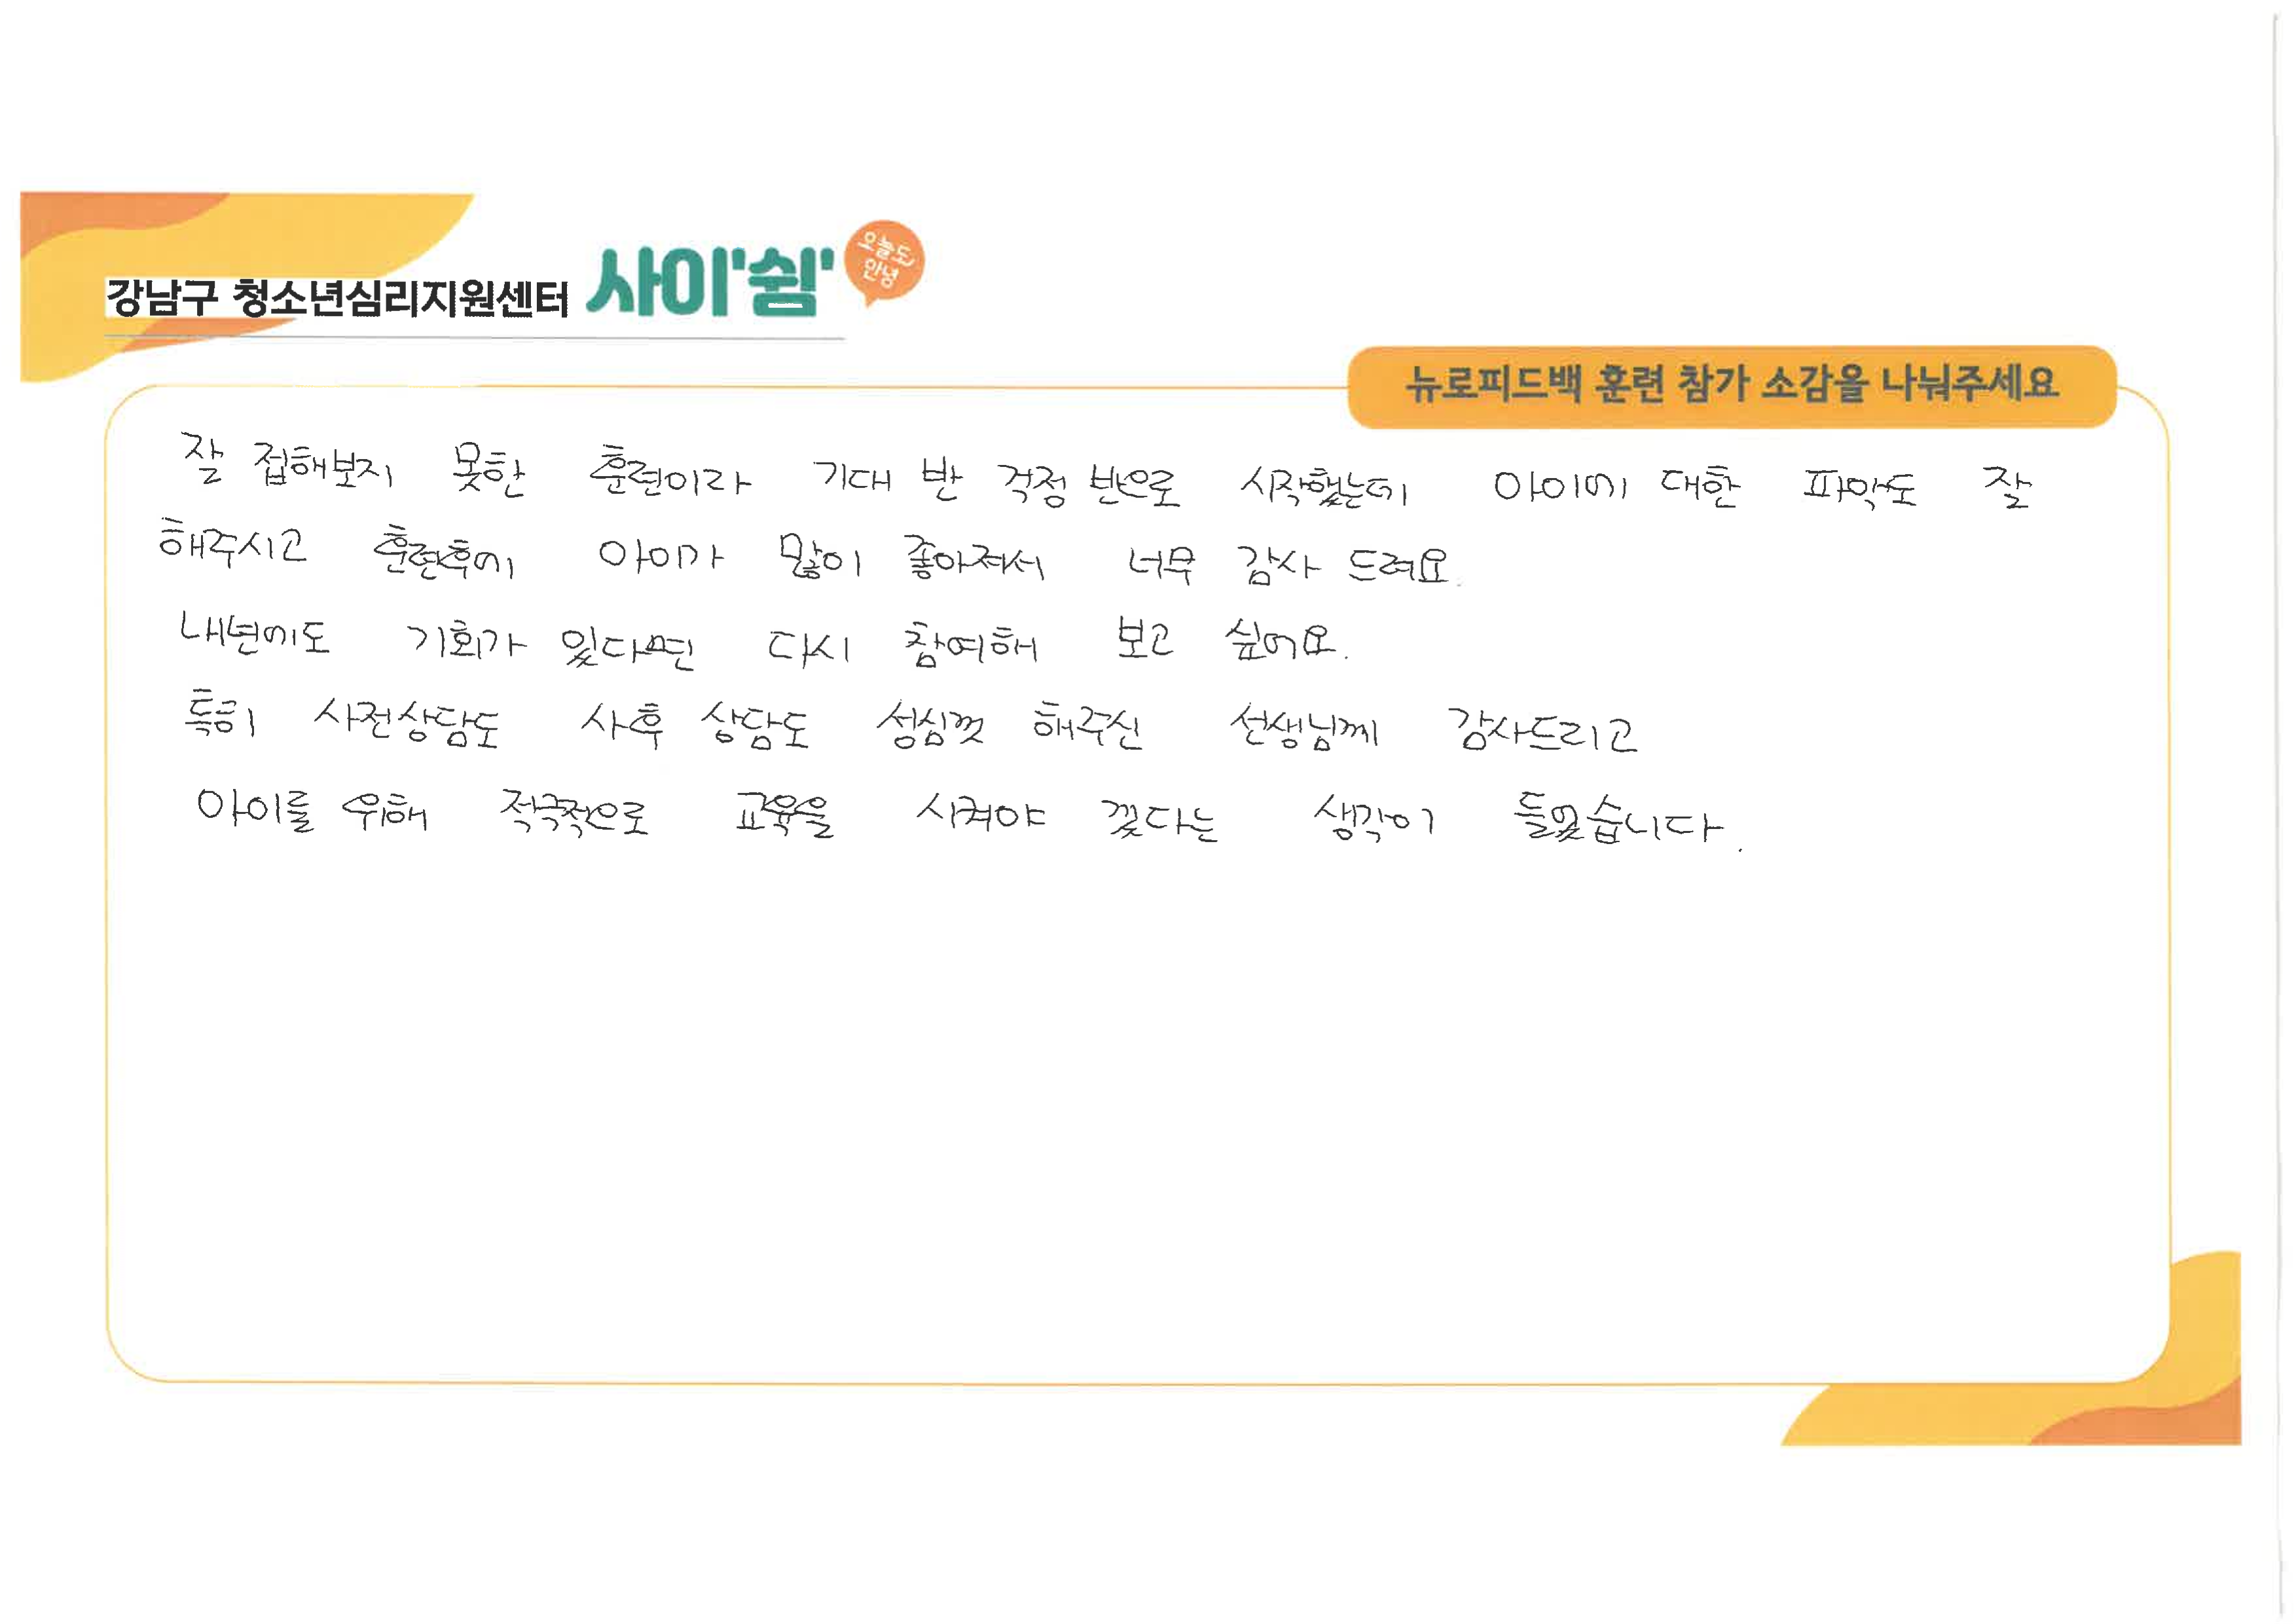 오늘도
안녕
강남구 청소년심리지원센터 사이'쉼'
뉴로피드백 훈련 참가 소감을 나눠주세요
잘 접해보지 못한 훈련이라 기대 반 걱정 반으로 시작했는데 아이에 대한 파악도 잘
해주시고 훈련후에 아이가 많이 좋아져서 너무 감사 드려요.
내년에도 기회가 있다면 다시 참여해 보고 싶어요.
특히 사전상담도 사후 상담도 성심껏 해주신 선생님께 감사드리고
아이를 위해 적극적으로 교육을 시켜야 겠다는 생각이 들었습니다.